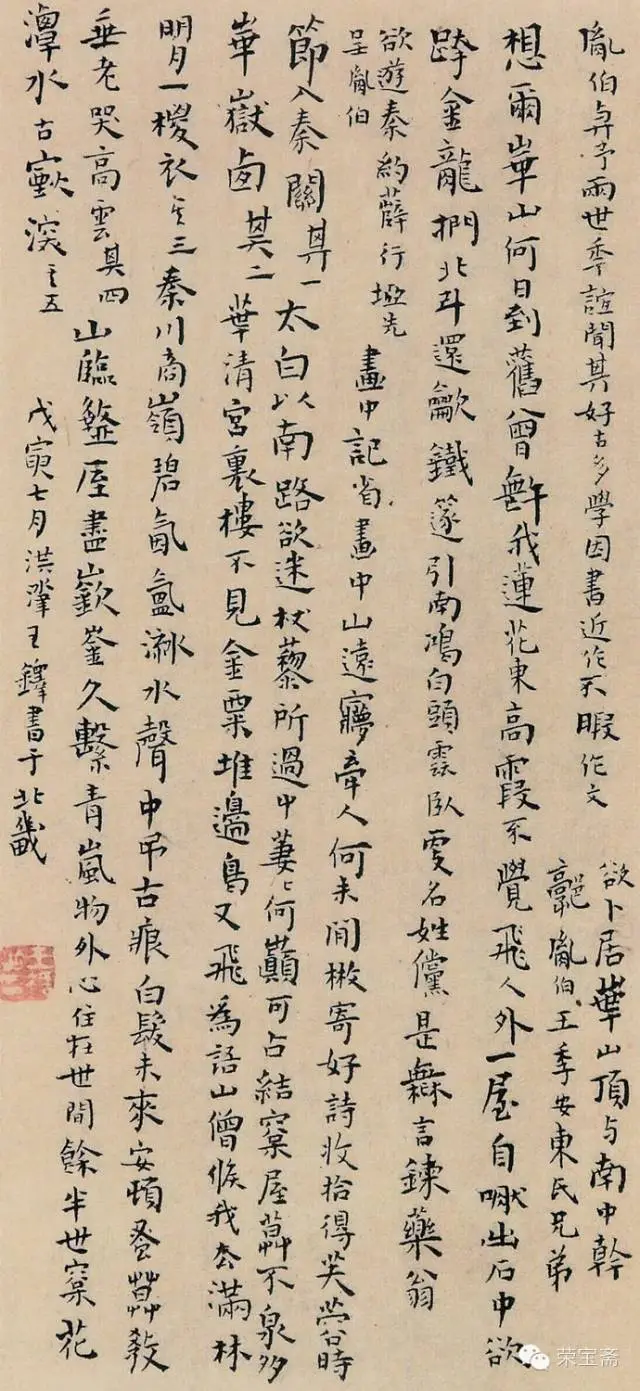 胤伯與予兩世季誼聞其好古多學因書近作不暇作文
欲卜居華山頂与南中幹
郭胤伯王季安東氏兄弟
想爾華山何日到舊曾許我蓮花東高霞不覺飛人外一屋自嘯出石中欲
跨金龍捫北斗還歃鐵篴引南鴻白頭雲臥変名姓儻是無言鍊藥翁
欲遊秦約薛行塢先
呈胤伯
畫中記省畫中山遠夢牽人何未閒檄寄好詩收拾得芙蓉時
節入秦關其一太白以南路欲迷杖藜所過中萋萋何巔可占結窠屋莫不泉多
華嶽鹵其二華清宮裏樓不見金粟堆邊鳥又飛為語山僧候我去滿林
明月一稷衣其三秦川商嶺碧氤氳渺水聲中弔古痕白髮未來安頓蚤莫教
垂老哭高雲其四山臨盩厔盡嶔崟久繫青嵐物外心住在世間餘半世窠花
潭水古嶽深其五
戊寅七月洪肇王鐸書于北畿
荣宝斋